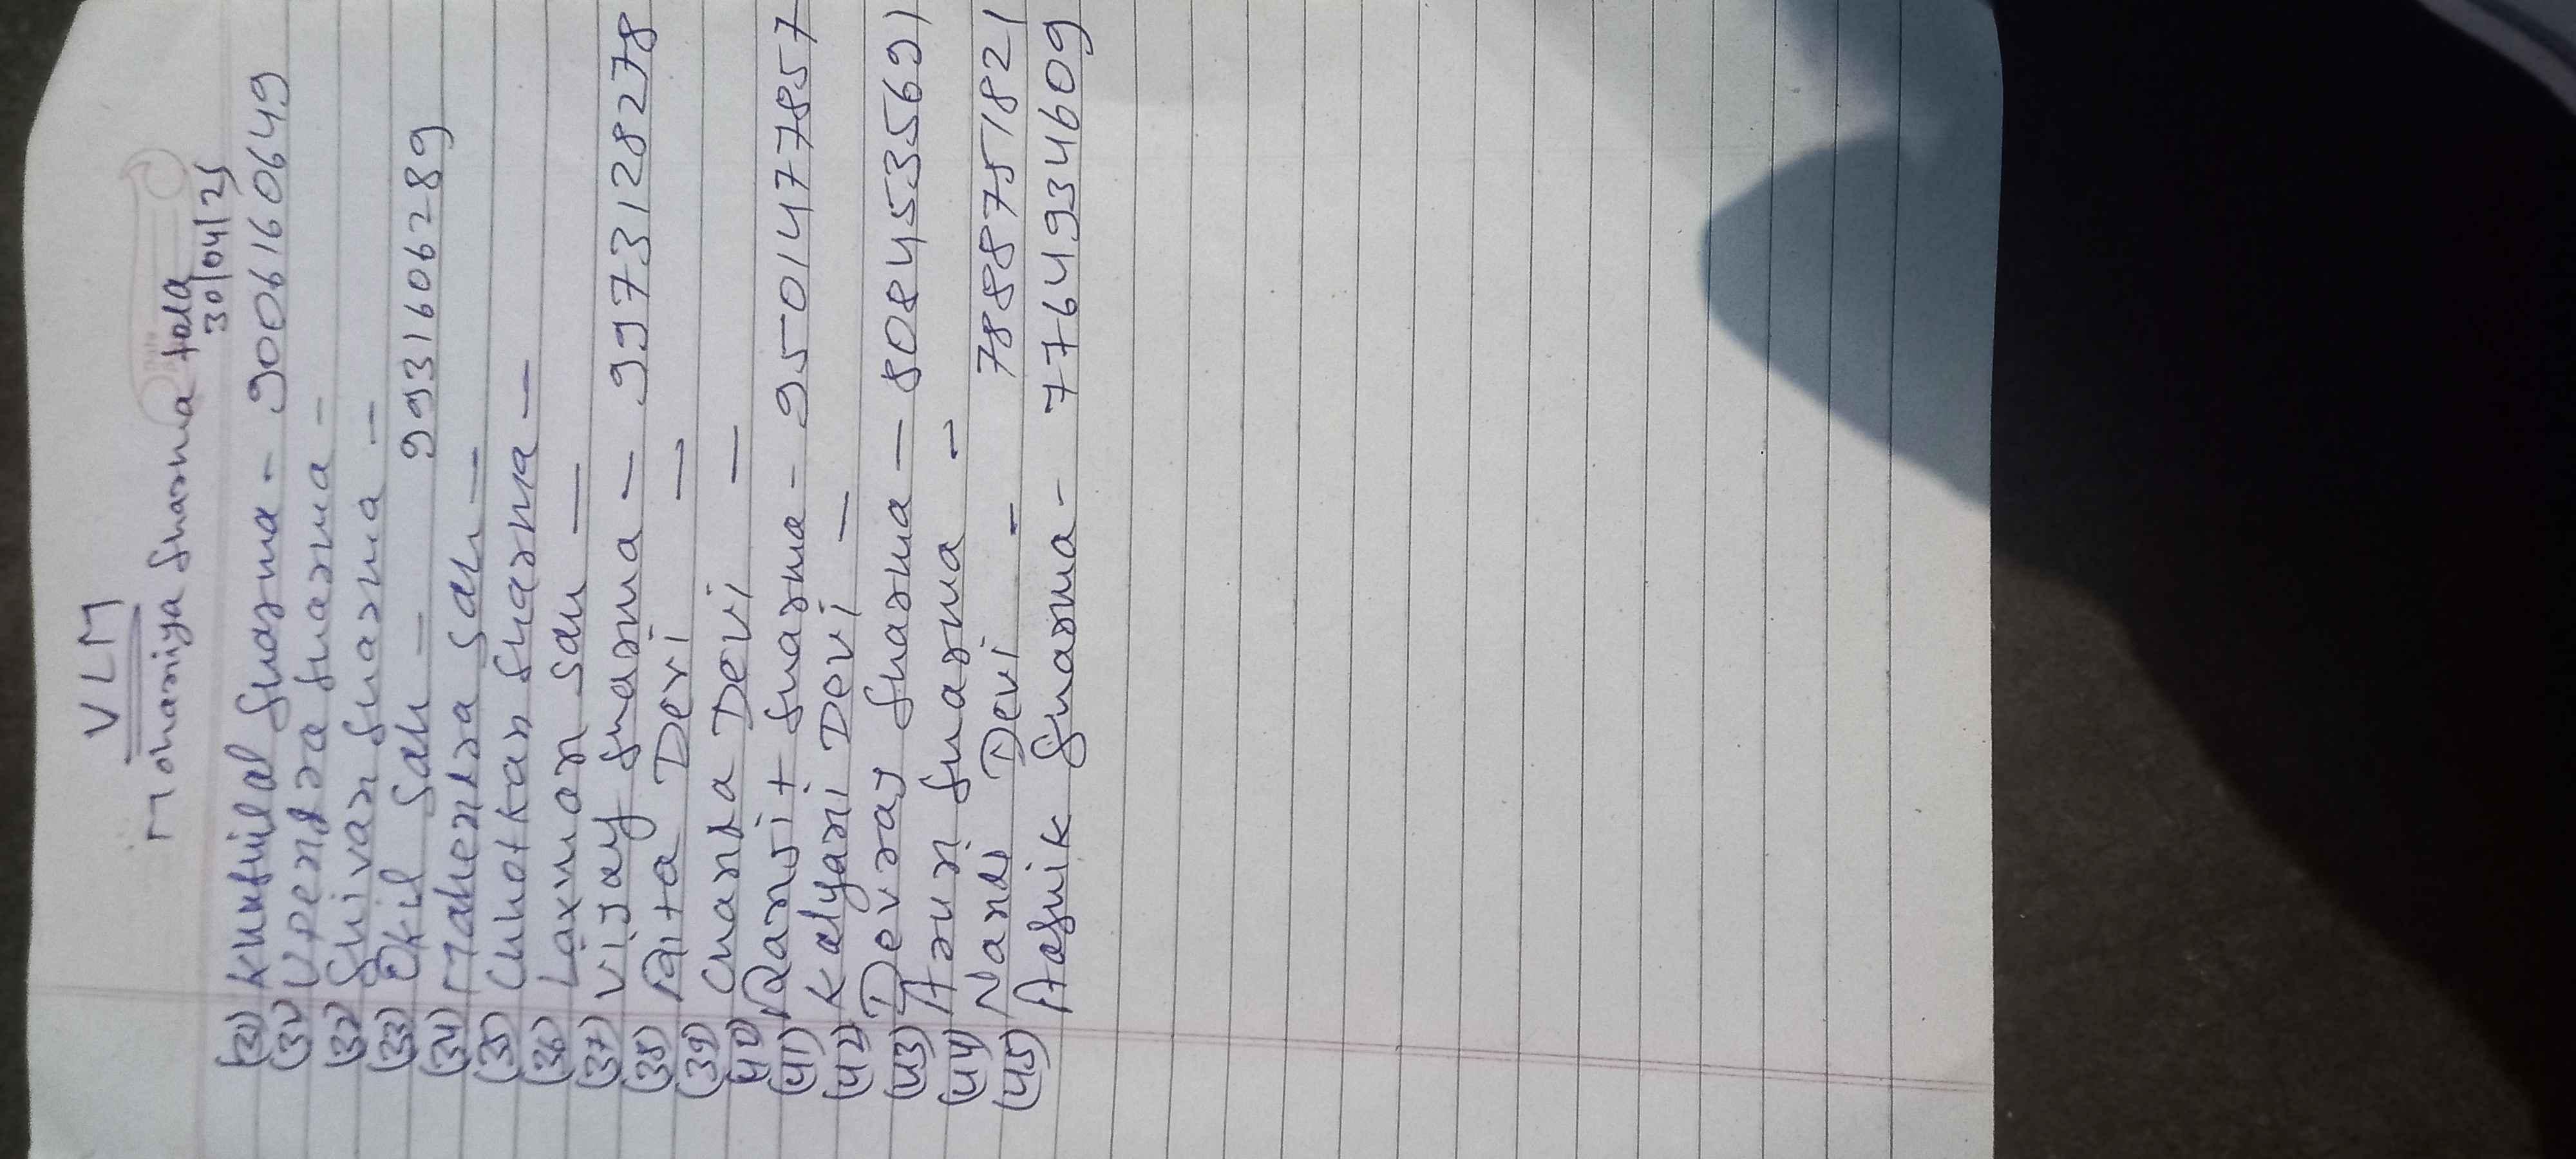 VLM
Mohaniya Sharma tola
30/04/25
(30) Khushilal Sharma - 9006160649
(31) Upendra Sharma -
(32) Shivan Sharma -
(33) Okil Sah - 9931606289
(34) Mahendra Sah -
(35) Chhotkan Sharma -
(36) Laxman Sah -
(37) Vijay Sharma - 9973128278
(38) Rita Devi -
(39) Chanda Devi -
(40) Ranjit Sharma - 9501477857
(41) Kalyani Devi -
(42) Devraj Sharma - 8084535691
(43) Arun Sharma -
(44) Nandi Devi - 7888751821
(45) Aashik Sharma - 7764934609